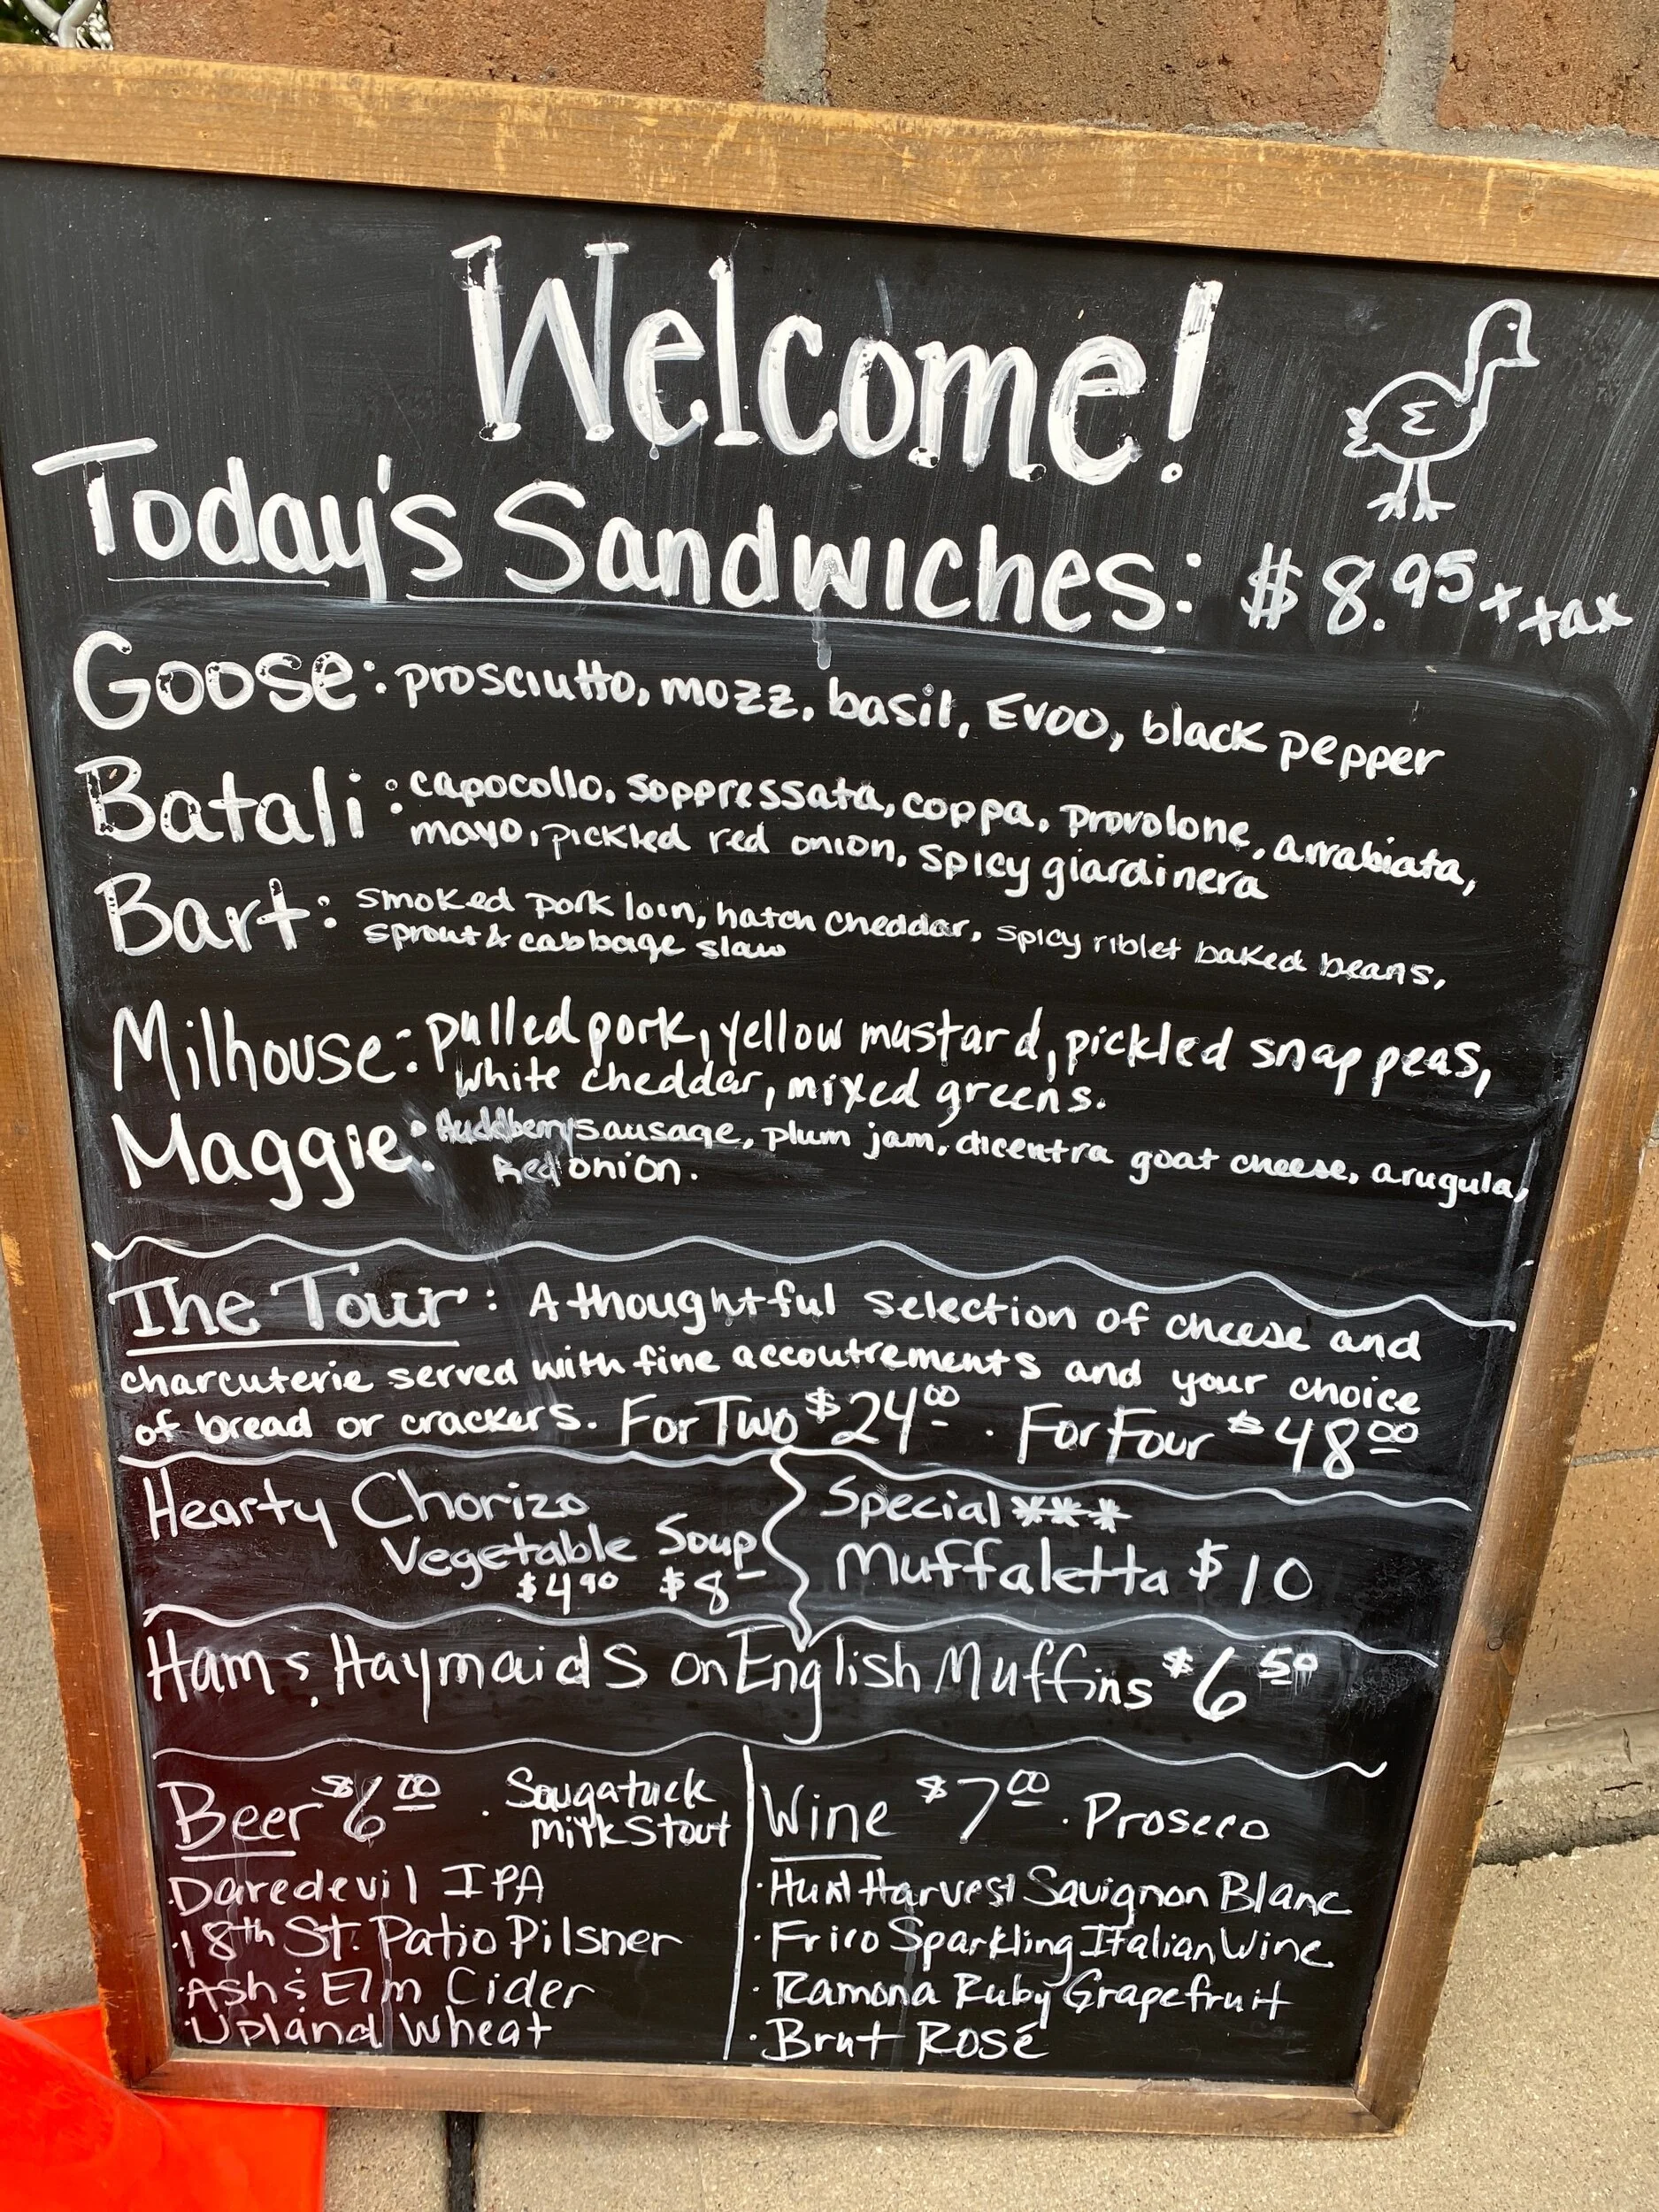 Welcome!
Today's Sandwiches: $8.95 + tax
Goose: prosciutto, mozz, basil, EVOO, black pepper
Batali: capocollo, soppressata, coppa, provolone, arrabiata,
mayo, pickled red onion, spicy giardinera
Bart: smoked pork loin, hatch cheddar, spicy riblet baked beans,
sprout & cabbage slaw
Milhouse: pulled pork, yellow mustard, pickled snap peas,
white cheddar, mixed greens.
Maggie: sausage, plum jam, dicentra goat cheese, arugula,
Red onion.
The Tour: A thoughtful selection of cheese and
charcuterie served with fine accoutrements and your choice
of bread or crackers. For Two $24.00 . For Four $48.00
Hearty Chorizo
Vegetable Soup
$4.90 $8-
Special ***
Muffaletta $10
Ham & Haymaids on English Muffins $6.50
Beer $6.00 · Saugatuck
milk Stout
Daredevil IPA
·18th St. Patio Pilsner
·Ash & Elm Cider
·Upland Wheat
Wine $7.00 · Prosecco
· Harvest Sauvignon Blanc
·Frico Sparkling Italian Wine
·Ramona Ruby Grapefruit
·Brut Rosé